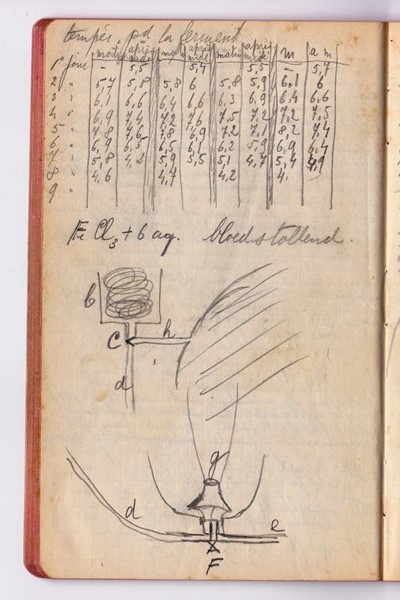 tempér. pd la ferment
matin après midi mat après midi matin après midi m a m
1° jour - 5,5 - 5,7 - 5,5 - 5,7
2 " 5,7 5,8 5,8 6 5,8 5,9 6,1 6
3 " 6,1 6,1 6,4 6,6 6,3 6,9 6,4 6,6
4 " 7,2 7,5 7,2 7,5
5 " 7,8 6,9 7,2 7,1 8,2 7,4
6 " 6,5 6,5 6,1 5,9 6,9 6,4
7 " 5,8 4,2 5,9 5,5 5,1 4,7 5,4 4,9
8 " 4,6 4,7 4,2 4,
9 "
Fe Cl3 + 6 aq. bloedstollend.
b
C h
d
g
d e
F